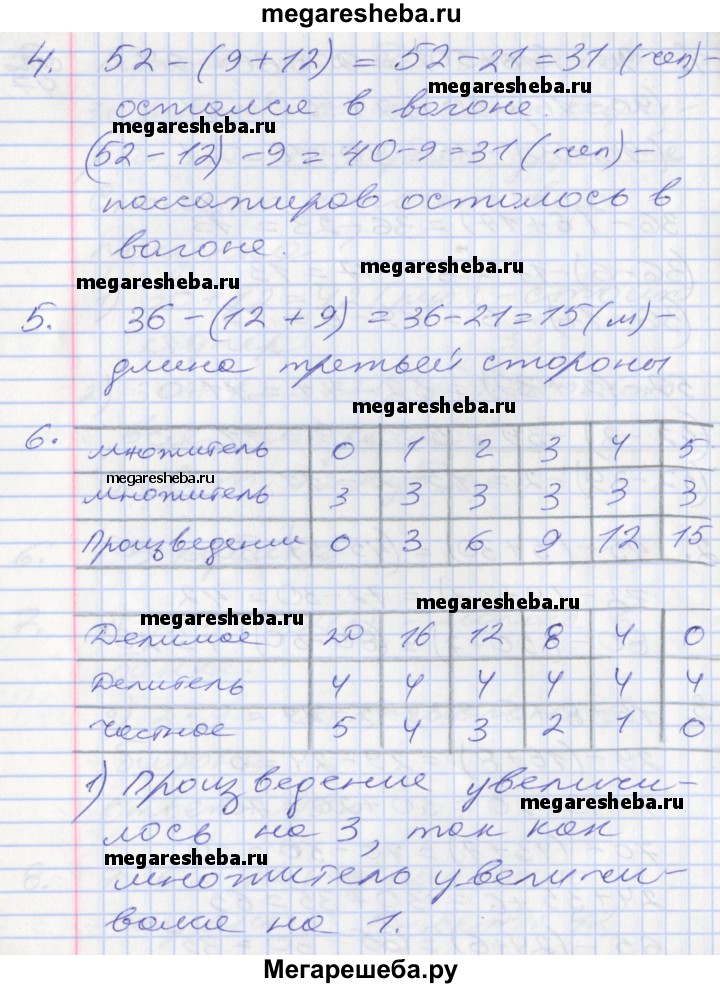 megaresheba.ru
4. 52 - (9 + 12) = 52 - 21 = 31 (чел) -
megaresheba.ru
остался в вагоне.
megaresheba.ru
(52 - 12) - 9 = 40 - 9 = 31 (чел) -
пассажиров осталось в
вагоне.
megaresheba.ru
megaresheba.ru
5. 36 - (12 + 9) = 36 - 21 = 15 (м) -
длина третьей стороны
megaresheba.ru
6. множитель 0 1 2 3 4 5
megaresheba.ru
множитель 3 3 3 3 3 3
Произведении 0 3 6 9 12 15
megaresheba.ru
megaresheba.ru
Делимое 20 16 12 8 4 0
Делитель 4 4 4 4 4 4
Частное 5 4 3 2 1 0
1) Произведение увеличи-
megaresheba.ru
лось на 3, так как
megaresheba.ru
множитель увеличи-
вался на 1.
Мегарешеба.ру